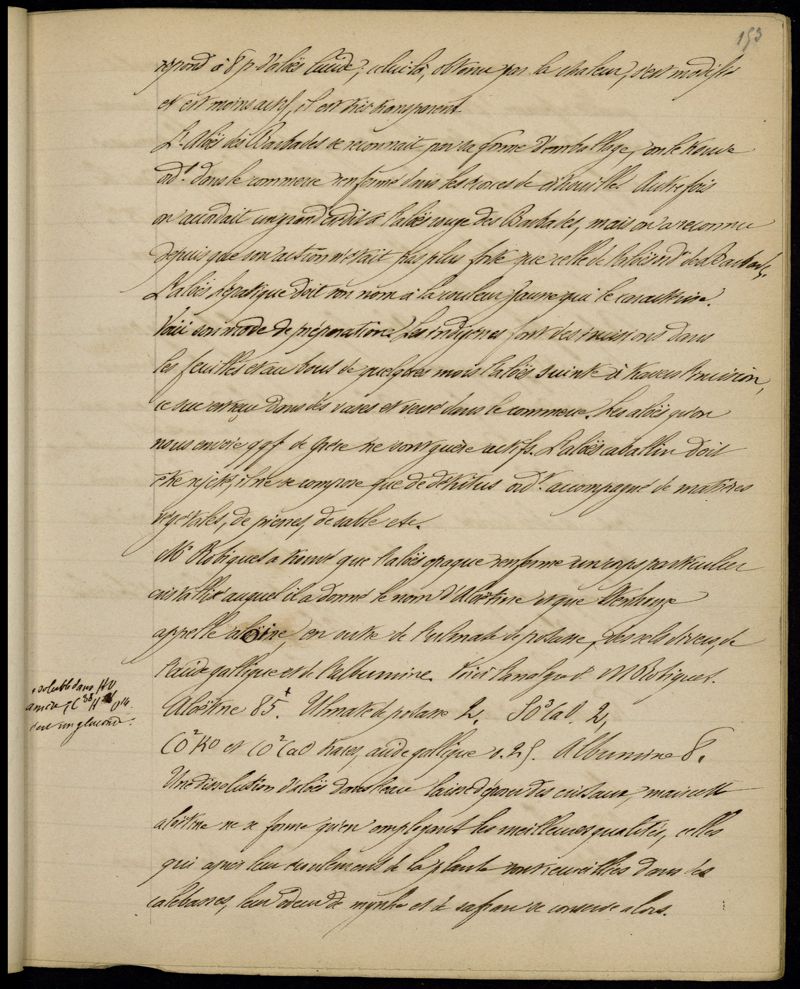 153
répond à 8 p d'aloès lucide, celui-là, obtenu par la chaleur, s'est modifié
et est moins actif, il est très transparent
L'aloès des Barbades se reconnait par sa forme d'emballage, on le trouve
ordt dans le commerce renfermé dans les écorces de citrouilles Autrefois
on accordait un grand crédit à l'aloès rouge des Barbades, mais on a reconnu
depuis que son action n'était pas plus forte que celle de l'aloès ordt des Barbades,
L'aloès hépatique doit son nom à la couleur jaune qui le caractérise.
Voici son mode de préparation. Les indigènes font des incisions dans
les feuilles et au bout de quelques mois l'aloès suinte à travers l'incision,
ce suc est reçu dans des vases et versé dans le commerce. Les aloès qu'on
nous envoie qqf de Grèce ne sont guère actifs. L'aloès caballin doit
être rejeté, il ne se compose que de détritus ordt accompagné de matières
végétales, de pierres, de sable etc.
Mr Robiquet a trouvé que l'aloès opaque renferme un corps particulier
cristallisé auquel il a donné le nom d'Aloétine et que Stenhouse
appelle aloïne, en outre de l'ulmate de potasse, des sels divers, de
l'acide gallique et de l'albumine. Voici l'analyse d M Robiquet.
+ soluble dans HO
amère, C38 H O14
c'est un glucoside.
Aloétine 85+. Ulmate de potasse 2, SO3CaO. 2,
CO2KO et CO2CaO traces, acide gallique 0.25. Albumine 8.
Une dissolution d'aloès dans l'eau laisse déposer des cristaux, mais cette
aloétine ne se forme qu'en employant les meilleures qualités, celles
qui après leur écoulement de la plante sont recueillies dans des
calebasses, leur odeur de myrrhe et de safran se conserve alors.